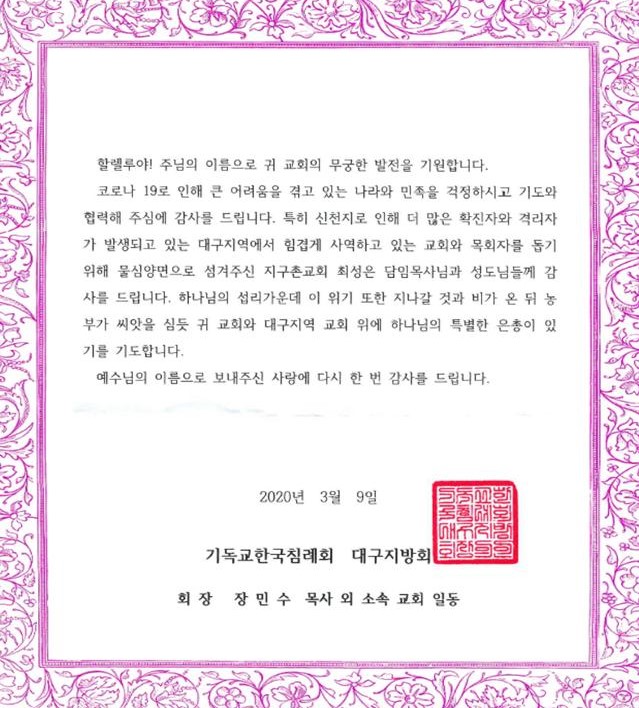 할렐루야! 주님의 이름으로 귀 교회의 무궁한 발전을 기원합니다.
코로나 19로 인해 큰 어려움을 겪고 있는 나라와 민족을 걱정하시고 기도와
협력해 주심에 감사를 드립니다. 특히 신천지로 인해 더 많은 확진자와 격리자
가 발생되고 있는 대구지역에서 힘겹게 사역하고 있는 교회와 목회자를 돕기
위해 물심양면으로 섬겨주신 지구촌교회 최성은 담임목사님과 성도님들께 감
사를 드립니다. 하나님의 섭리가운데 이 위기 또한 지나갈 것과 비가 온 뒤 농
부가 씨앗을 심듯 귀 교회와 대구지역 교회 위에 하나님의 특별한 은총이 있
기를 기도합니다.
예수님의 이름으로 보내주신 사랑에 다시 한 번 감사를 드립니다.
2020년 3월 9일
기독교한국침례회 대구지방회
회 장 장 민 수 목사 외 소속 교회 일동